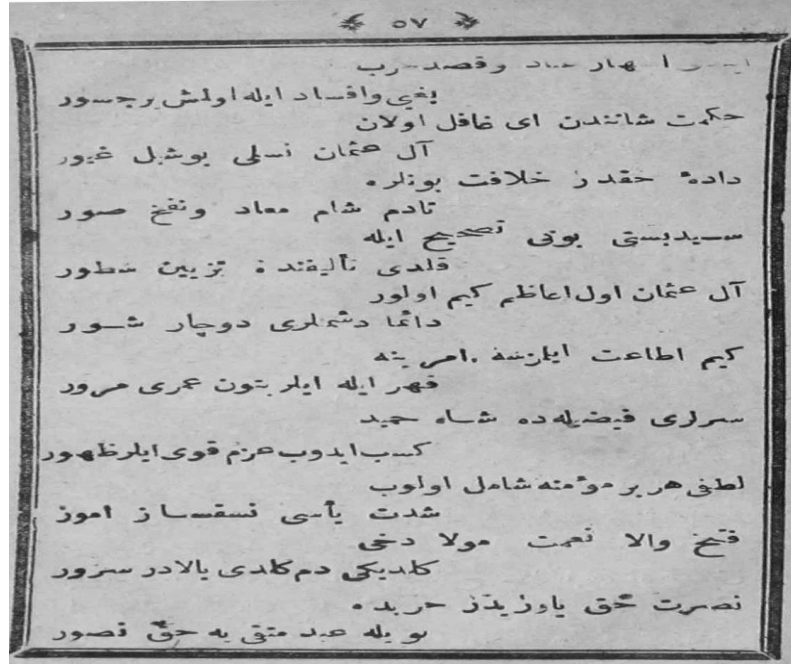 ٥٧
وقصد
بغی وافساد ایله اولمش برجسور
حکمت شانندن ای غافل اولان
آل عثمان نسلی بوشبل غیور
دادهٔ حقدر خلافت بونلره
تادم شام معاد ونفخ صور
سیدبستی بونی تصحیح ایله
قلدی تألیفنده تزیین سطور
آل عثمان اول اعاظم کیم اولور
دائما دشملری دوچار شور
کیم اطاعت ایلرسه امرینه
قهر ایله ایلر بتون عمری مرور
سرلری فیضیله ده شاه حمید
کسب ایدوب عزم قوی ایلر ظهور
لطفی هر بر مؤمنه شامل اولوب
شدت یأسی نسقساز امور
فتح والا نعمت مولا دخی
کلدیکی دم کلدی بالادر سرور
نصرت حق یاور حربده
عبد متقی یه حق قصور